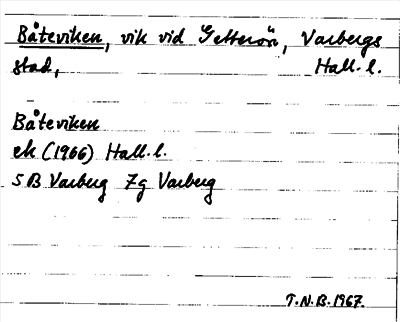 Båteviken, vik vid Getterön, Varbergs
stad, Hall. l.
Båteviken
ek (1966) Hall. l.
5B Varberg 7g Varberg
T.N.B. 1967.